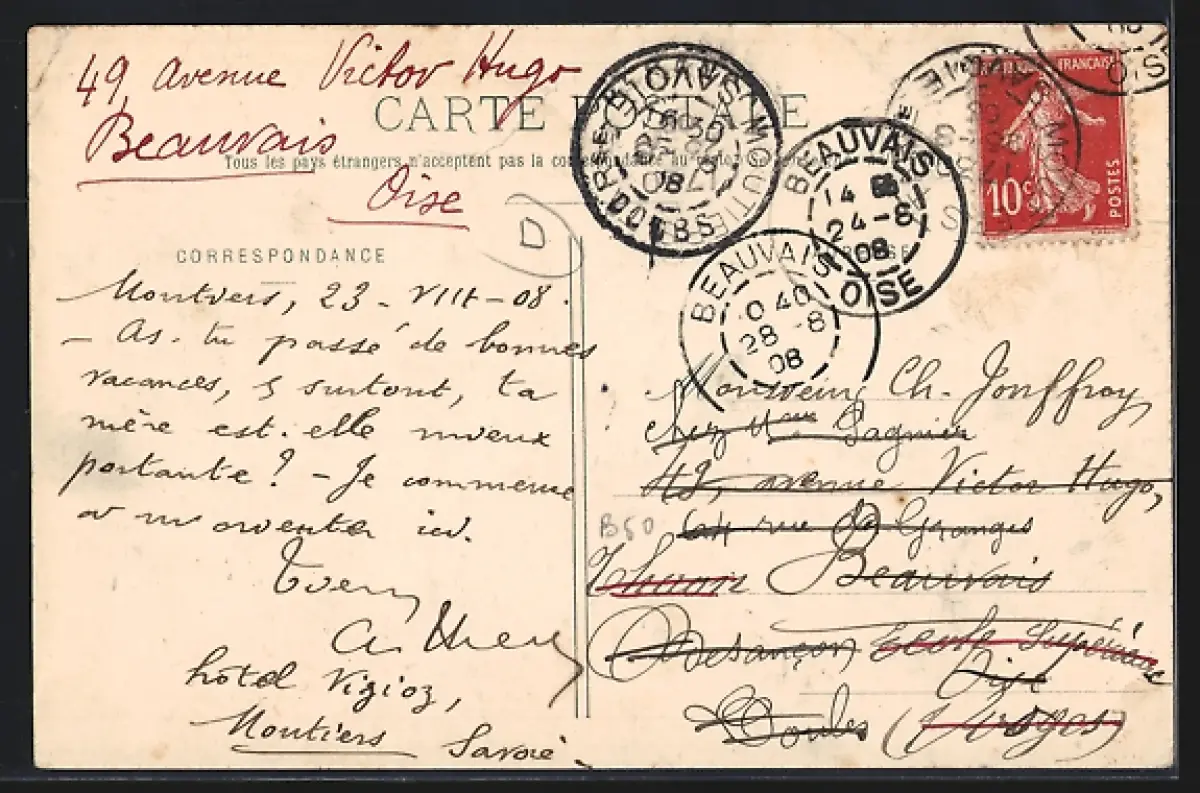 49 avenue Victor Hugo
Beauvais
Oise
CARTE POSTALE
Tous les pays étrangers n'acceptent pas la correspondance au recto
CORRESPONDANCE
Moutiers, 23 - VIII - 08.
- As-tu passé de bonnes
vacances, & surtout, ta
mère est-elle mieux
portante ? - Je commence
à m'orienter ici.
hôtel Vizioz,
Moutiers Savoie
MOUTIERS
SAVOIE
DOUBS
BEAUVAIS
14
24 - 8
08
OISE
BEAUVAIS
0 40
28 - 8
08
FRANÇAISE
10 c
POSTES
Monsieur Ch. Jouffroy
chez Mme Gagnier
43, avenue Victor Hugo,
64 rue des Granges
B50
Beauvais
Besançon Ecole Supérieure
Oise
Doubs (Vosges)